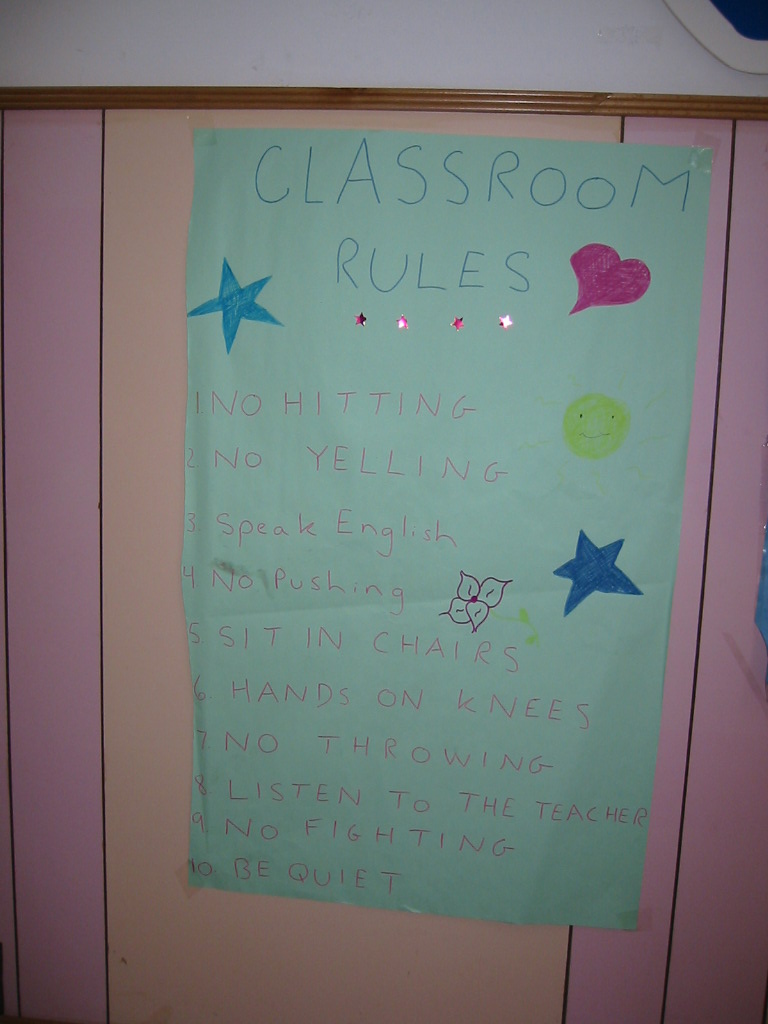 CLASSROOM
RULES
1. NO HITTING
2 NO YELLING
3. Speak English
4 No Pushing
5. SIT IN CHAIRS
6. HANDS ON KNEES
7. NO THROWING
8. LISTEN TO THE TEACHER
9. NO FIGHTING
10. BE QUIET